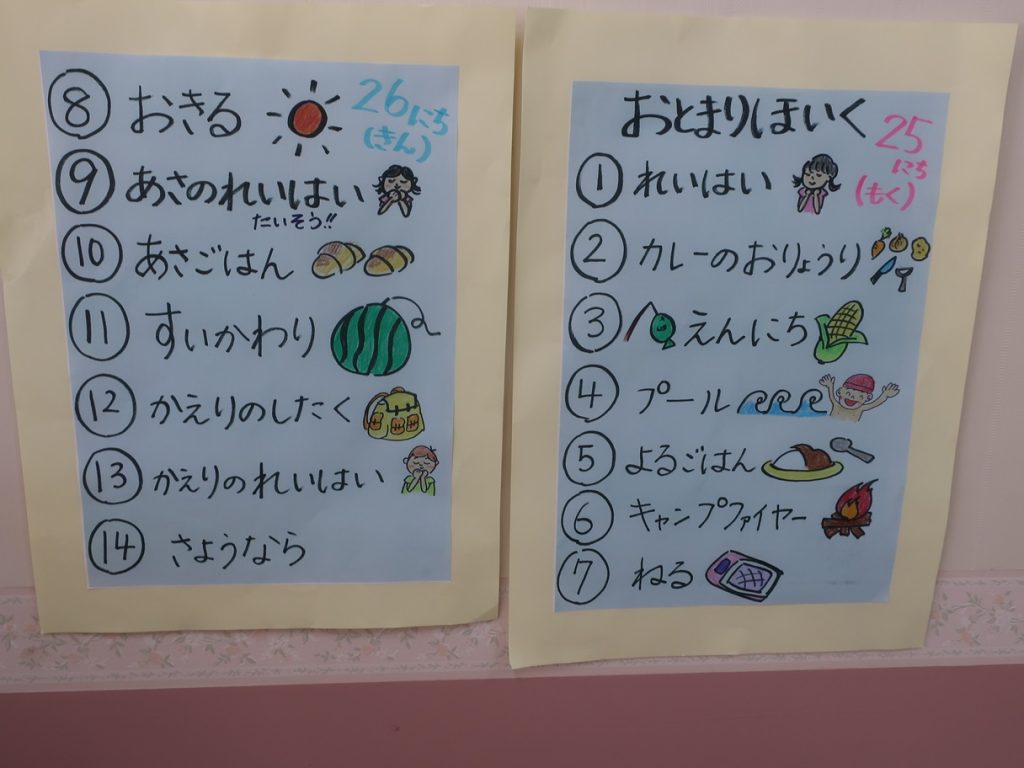 おとまりほいく
25にち
(もく)
① れいはい
② カレーのおりょうり
③ えんにち
④ プール
⑤ よるごはん
⑥ キャンプファイヤー
⑦ ねる
26にち
(きん)
⑧ おきる
⑨ あさのれいはい
たいそう!!
⑩ あさごはん
⑪ すいかわり
⑫ かえりのしたく
⑬ かえりのれいはい
⑭ さようなら